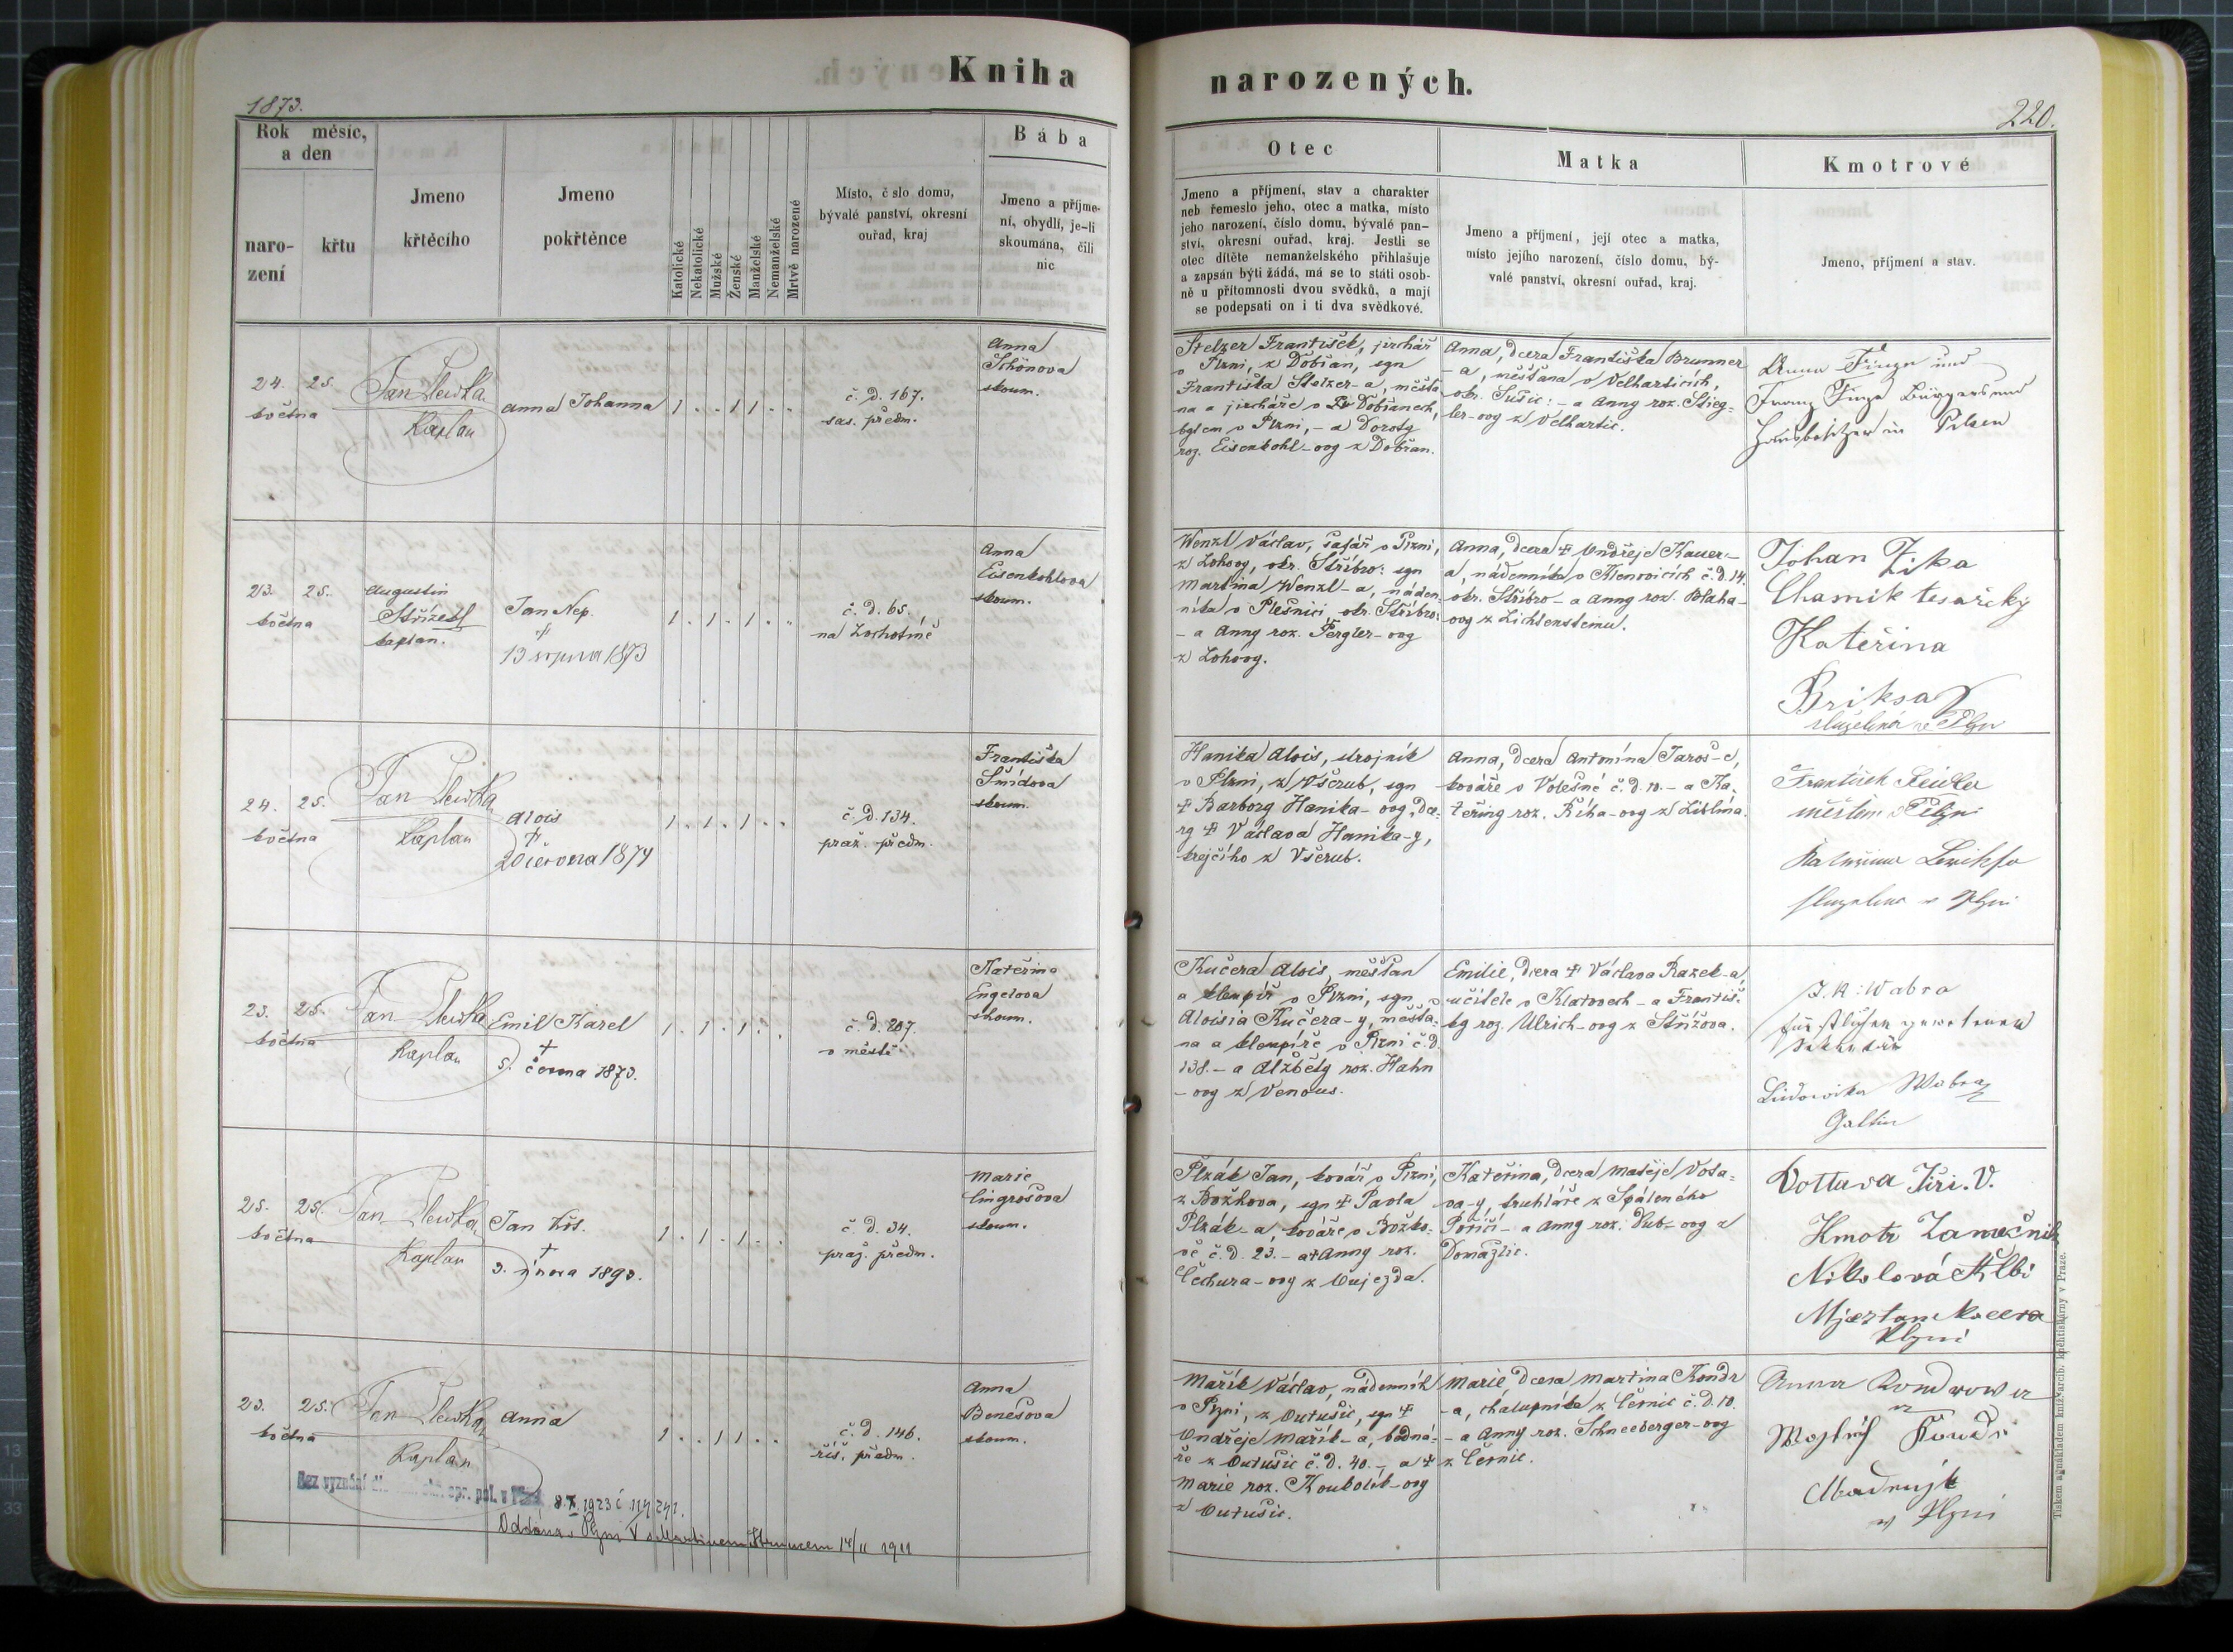 Kniha
narozených.
1873.
220.
Rok měsíc,
a den
naro-
zení
křtu
Jmeno
křtěcího
Jmeno
pokřtěnce
Katolické
Nekatolické
Mužské
Ženské
Manželské
Nemanželské
Mrtvě narozené
Místo, č slo domu,
bývalé panství, okresní
ouřad, kraj
Bába
Jmeno a příjme-
ní, obydlí, je-li
skoumána, čili
nic
Otec
Jmeno a příjmení, stav a charakter
neb řemeslo jeho, otec a matka, místo
jeho narození, číslo domu, bývalé pan-
ství, okresní ouřad, kraj. Jestli se
otec dítěte nemanželského přihlašuje
a zapsán býti žádá, má se to státi osob-
ně u přítomnosti dvou svědků, a mají
se podepsati on i ti dva svědkové.
Matka
Jmeno a příjmení, její otec a matka,
místo jejího narození, číslo domu, bý-
valé panství, okresní ouřad, kraj.
Kmotrové
Jmeno, příjmení a stav.
24. 25.
května
Jan
Kaplan
Anna Johanna
1 . . 1 1 . .
č. d. 167.
sas. předm.
Anna
Schönova
skoum.
Stelzer František, jirchář
v Plzni, z Dobřan, syn
Františka Stelzer-a, měšťa-
na a jircháře v Dobřanech,
bytem v Plzni, - a Doroty
roz. Eisenkohl-ovy z Dobřan.
Anna, dcera Františka Brunner
-a, měšťana v Velharticích,
okr. Sušic: - a Anny roz. Stieg-
ler-ovy z Velhartic.
Anna und
Franz Bürger und
Hausbesitzer in Pilsen
23. 25.
května
Augustin
Střízetl
kaplan.
Jan Nep.
†
13 srpna 1873
1 . 1 . 1 . .
č. d. 65.
na Lochotíně
Anna
Eisenkohlova
skoum.
Wenzl Václav, šafář v Plzni,
z Lohovy, okr. Stříbro: syn
Martina Wenzl-a, náden-
níka v Plešnici, okr. Stříbro:
- a Anny roz. Pergler-ovy
z Lohovy.
Anna, dcera † Ondřeje Kauer-
a, nádenníka v č. d. 14.
okr. Stříbro - a Anny roz. Blaha-
ovy z Lichtensteinu.
Johan Zika
tesařský
Kateřina
Briksa
v Plzni
24. 25.
května
Jan
Kaplan
Alois
†
20 června 1874
1 . 1 . 1 . .
č. d. 134.
praž. předm.
Františka
Šmídova
skoum.
Hanika Alois, strojník
v Plzni, z Všerub, syn
† Barbory Hanika-ovy, dce-
ry † Václava Hanika-y,
krejčího z Všerub.
Anna, dcera Antonína Jaroš-e,
kováře v Volešné č. d. 10. - a Ka-
teřiny roz. Říha-ovy z Liblína.
František
v Plzni
v Plzni
23. 25.
května
Jan
Kaplan
Emil Karel
†
5. června 1873.
1 . 1 . 1 . .
č. d. 207.
v městě.
Kateřina
Engelova
skoum.
Kučera Alois, měšťan
a klempíř v Plzni, syn
Aloisia Kučera-y, měšťa-
na a klempíře v Plzni č. d.
138. - a Alžběty roz. Hahn
-ovy z Venous.
Emilie, dcera † Václava Razek-a,
učitele v Klatovech - a Františ-
ky roz. Ulrich-ovy z Střížova.
J. K: Wabra
Ludowika Wabra
Gattin
25. 25.
května
Jan
Kaplan
Jan Křt.
†
3. února 1893.
1 . 1 . 1 . .
č. d. 34.
praž. předm.
Marie
Cingrošova
skoum.
Plzák Jan, kovář v Plzni,
z Božkova, syn † Pavla
Plzák-a, kováře v Božko-
vě č. d. 23. - a † Anny roz.
Čechura-ovy z Oujezda.
Kateřina, dcera Matěje Vota-
va-y, truhláře z Spáleného
Poříčí - a Anny roz. Dub-ovy z
Domažlic.
Vottava Jiri. V.
Kmotr Zamečnik
Nikolová
Plzni
23. 25.
května
Jan
Kaplan
Anna
1 . . 1 1 . .
č. d. 146.
říš. předm.
Anna
Benešova
skoum.
Mařík Václav, nádenník
v Plzni, z Outušic, syn †
Ondřeje Mařík-a, bedná-
ře z Outušic č. d. 40. - a †
Marie roz. Koubolík-ovy
z Outušic.
Marie dcera Martina Kondr
-a, chalupníka z Černic č. d. 10.
- a Anny roz. Schneeberger-ovy
z Černic.
Anna
w Plzni
Bez vyznání
8. X. 1923 č 114241.
Oddána v Plzni 14/II 1911
Tiskem a
v Praze.